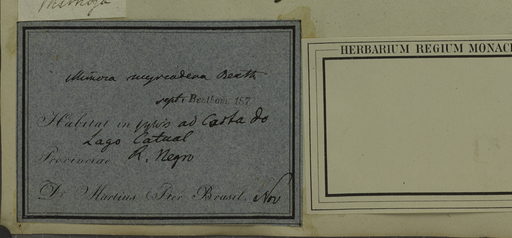 Mimosa myriadena Benth
sept. Bentham 187
HERBARIUM REGIUM MONAC
Habitat in sylvis ad Costa do
Lago
Provinciae R. Negro
Dr. Martius Iter Brasil. Nov